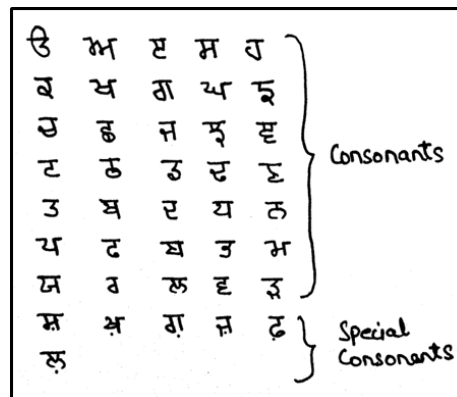 ੳ ਅ ੲ ਸ ਹ
ਕ ਖ ਗ ਘ ਙ
ਚ ਛ ਜ ਝ ਞ
ਟ ਠ ਡ ਢ ਣ
ਤ ਥ ਦ ਧ ਨ
ਪ ਫ ਬ ਭ ਮ
ਯ ਰ ਲ ਵ ੜ
Consonants
ਸ਼ ਖ਼ ਗ਼ ਜ਼ ਫ਼
ਲ਼
Special
Consonants